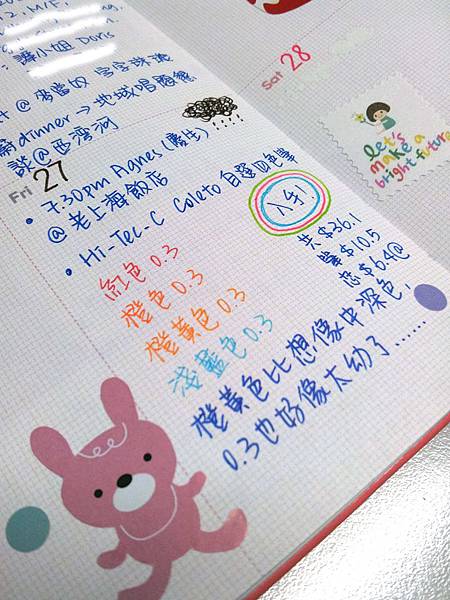 2, M/F,
: 譚小姐 Doris
+ @ 麥當奴
dinner → 地域唱顧餐
談@西灣河
Fri 27
• 7:30pm Agnes (慶生)
@ 老上海飯店
• Hi-Tec-C Coleto 自選四色筆
入手!
紅色 0.3
橙色 0.3
橙黃色 0.3
淺藍色 0.3
共 $36.1
筆 $10.5
芯 $6.4@
橙黃色比想像中深色,
0.3也好像太幼了......
Sat 28
let's
make a
bright future